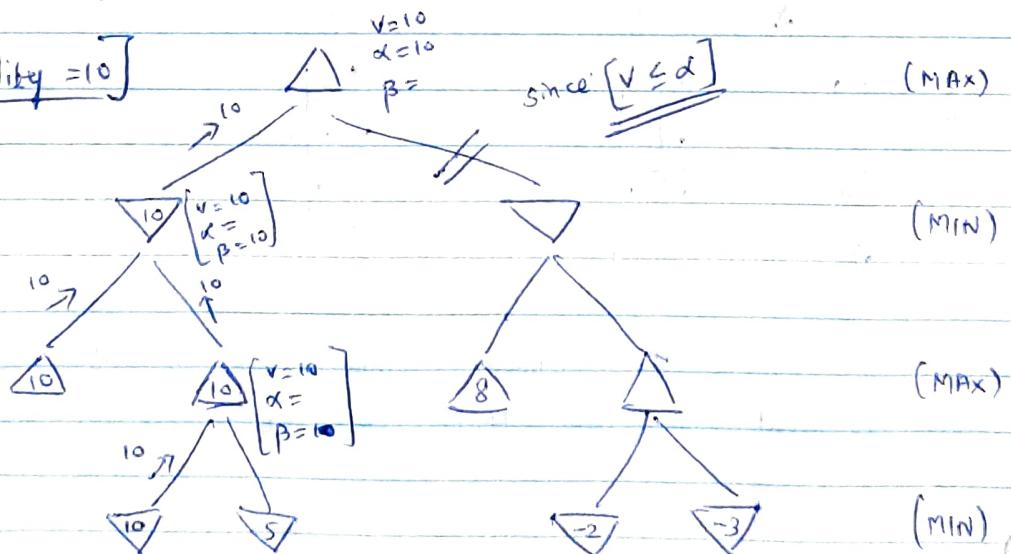 =10]
v=10
α=10
β=
since [v ≤ α]
(MAX)
10
10 [v=10
α=
β=10]
(MIN)
10
10
10
10 [v=10
α=
β=10]
8
(MAX)
10
10
5
-2
-3
(MIN)